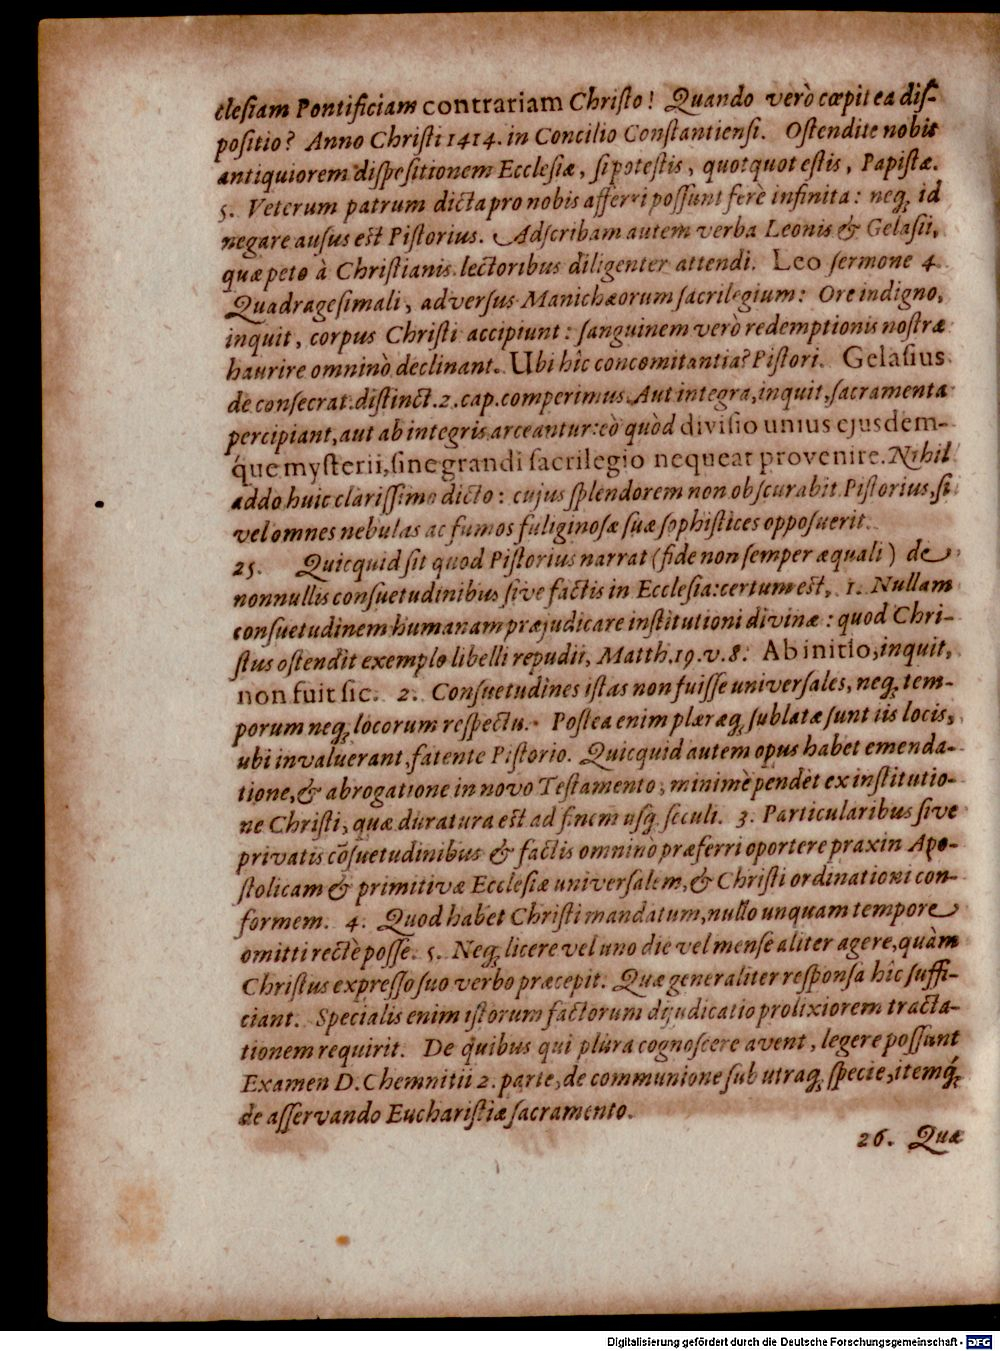 clesiam Pontificiam contrariam Christo! Quando verò cœpit ea dis-
positio? Anno Christi 1414. in Concilio Constantiensi. Ostendite nobis
antiquiorem dispesitionem Ecclesiæ, si potestis, quotquot estis, Papistæ.
5. Veterum patrum dicta pro nobis afferri possunt ferè infinita: neq; id
negare ausus est Pistorius. Adscribam autem verba Leonis & Gelasii,
quæ peto à Christianis lectoribus diligenter attendi. Leo sermone 4.
Quadragesimali, adversus Manichæorum sacrilegium: Ore indigno,
inquit, corpus Christi accipiunt: sanguinem verò redemptionis nostræ
haurire omninò declinant. Ubi hîc concomitantia? Pistori. Gelasius
de consecrat. distinct. 2. cap. comperimus. Aut integra, inquit, sacramenta
percipiant, aut ab integris arceantur: eò quòd divisio unius ejusdem-
que mysterii, sine grandi sacrilegio nequeat provenire. Nihil
addo huic clarissimo dicto: cujus splendorem non obscurabit Pistorius, si
vel omnes nebulas ac fumos fuliginosæ suæ sophistices opposuerit.
25. Quicquid sit quod Pistorius narrat (fide non semper æquali) de
nonnullis consuetudinibus sive factis in Ecclesia: certum est, 1. Nullam
consuetudinem humanam præjudicare institutioni divinæ: quod Chri-
stus ostendit exemplo libelli repudii, Matth. 19. v. 8. Ab initio, inquit,
non fuit sic. 2. Consuetudines istas non fuisse universales, neq; tem-
porum neq; locorum respectu. Postea enim plæræq; sublatæ sunt iis locis,
ubi invaluerant, fatente Pistorio. Quicquid autem opus habet emenda-
tione, & abrogatione in novo Testamento, minimè pendet ex institutio-
ne Christi, quæ duratura est ad finem usq; seculi. 3. Particularibus sive
privatis cõsuetudinibus & factis omninò præferri oportere praxin Apo-
stolicam & primitivæ Ecclesiæ universalem, & Christi ordinationi con-
formem. 4. Quod habet Christi mandatum, nullo unquam tempore
omitti rectè posse. 5. Neq; licere vel uno die vel mense aliter agere, quàm
Christus expresso suo verbo præcepit. Quæ generaliter responsa hîc suffi-
ciant. Specialis enim istorum factorum dijudicatio prolixiorem tracta-
tionem requirit. De quibus qui plura cognoscere avent, legere possunt
Examen D. Chemnitii 2. parte, de communione sub utraq; specie, itemq́;
de asservando Eucharistiæ sacramento.
26. Quæ
Digitalisierung gefördert durch die Deutsche Forschungsgemeinschaft - DFG